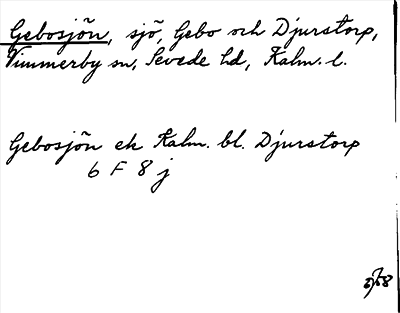 Gebosjön, sjö, Gebo och Djurstorp,
Vimmerby sn, Sevede hd, Kalm. l.
Gebosjön ek Kalm. bl. Djurstorp
6 F 8 j